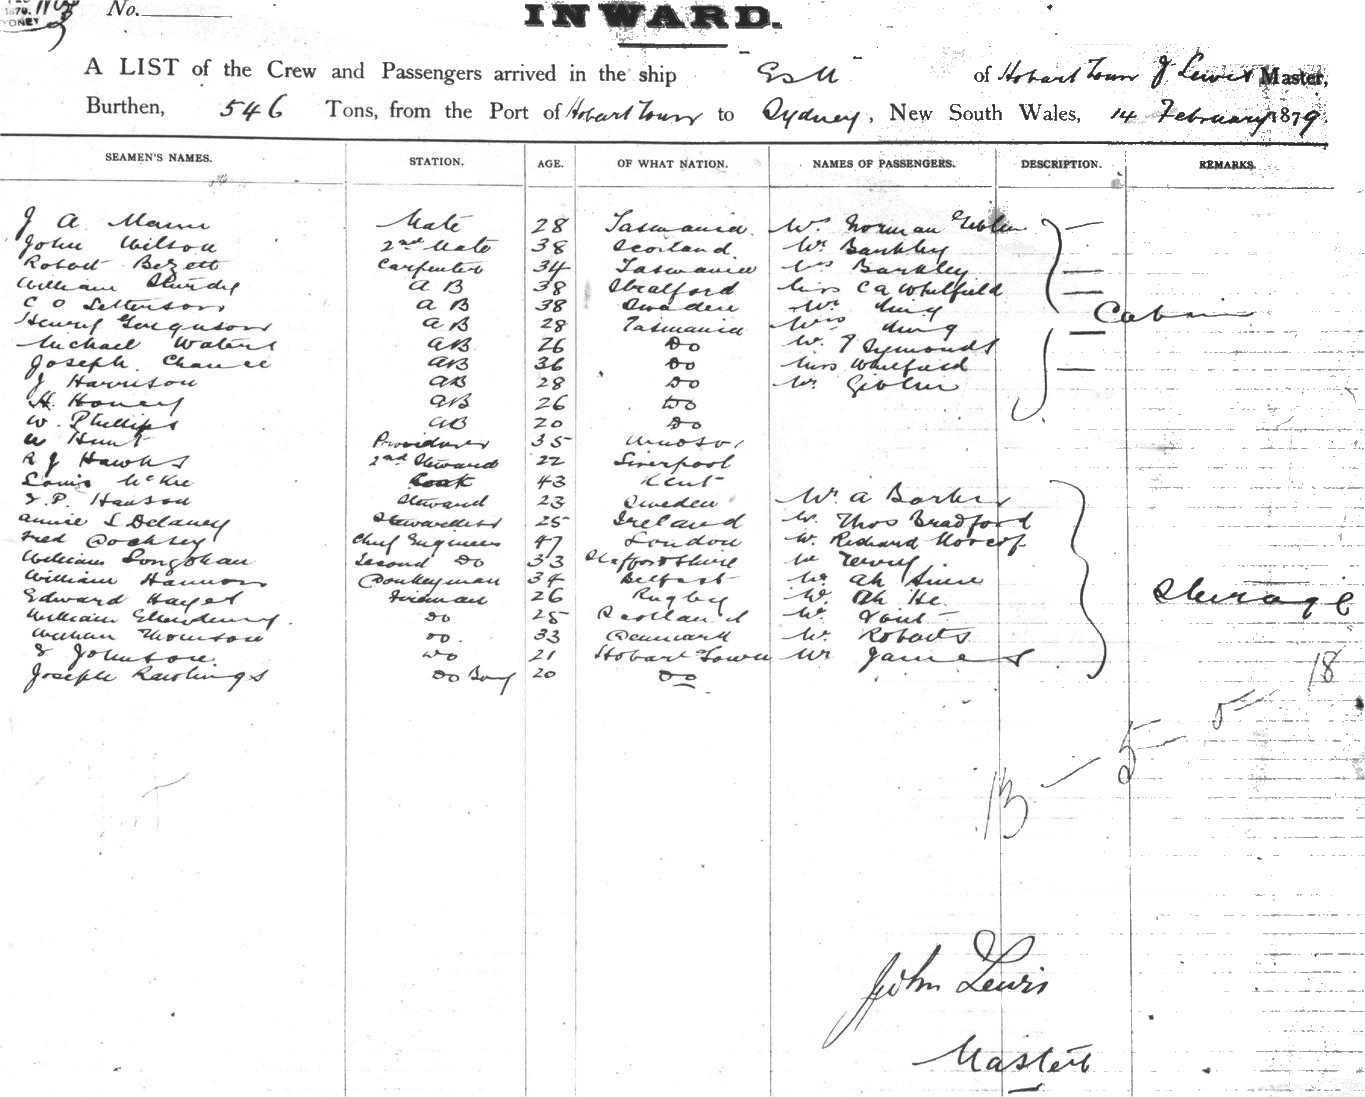 1879.
SYDNEY
No.
INWARD.
A LIST of the Crew and Passengers arrived in the ship Esk of Hobart Town J Lewis Master,
Burthen, 546 Tons, from the Port of Hobart Town to Sydney, New South Wales, 14 February 1879.
SEAMEN'S NAMES. STATION. AGE. OF WHAT NATION. NAMES OF PASSENGERS. DESCRIPTION. REMARKS.
J A Mann Mate 28 Tasmania. Mr Norman Giblin
John Wilson 2nd Mate 38 Scotland. Mr Barkley
Robert Carpenter 34 Tasmania Mrs Barkley
William A B 38 Stratford Miss C A Whitfield
C O Petterson A B 38 Sweden Mr King Cabin
Henry Ferguson A B 28 Tasmania Mrs King
Michael Waters AB 26 Do Mr Symonds
Joseph Chance AB 36 Do Miss Whitfield
J Harrison AB 28 Do Mr Giblin
H. Honey AB 26 Do
W. Phillips AB 20 Do
W Hunt Providore 35 Windsor
R J Hawks 2nd Steward 22 Liverpool
Louis McKie Cook 43 Kent
J. P. Hanson Steward 23 Sweden Mr A Barker
Annie L Delaney Stewardess 25 Ireland Mr Thos Bradford
Fred Cocksey Chief Engineer 47 London Mr Richard
William Second Do 33 Staffordshire Mr Terry
William Hannon Donkeyman 34 Belfast Mr Ah
Edward Hayes Fireman 26 Rugby Mr Ah He Steerage
William Do 25 Scotland Mr
William Thomson Do. 33 Denmark Mr Roberts
J Johnson. Do 21 Hobart Town Mr James
Joseph Rawlings Do Boy 20 Do
18
13 - 5 -
John Lewis
Master